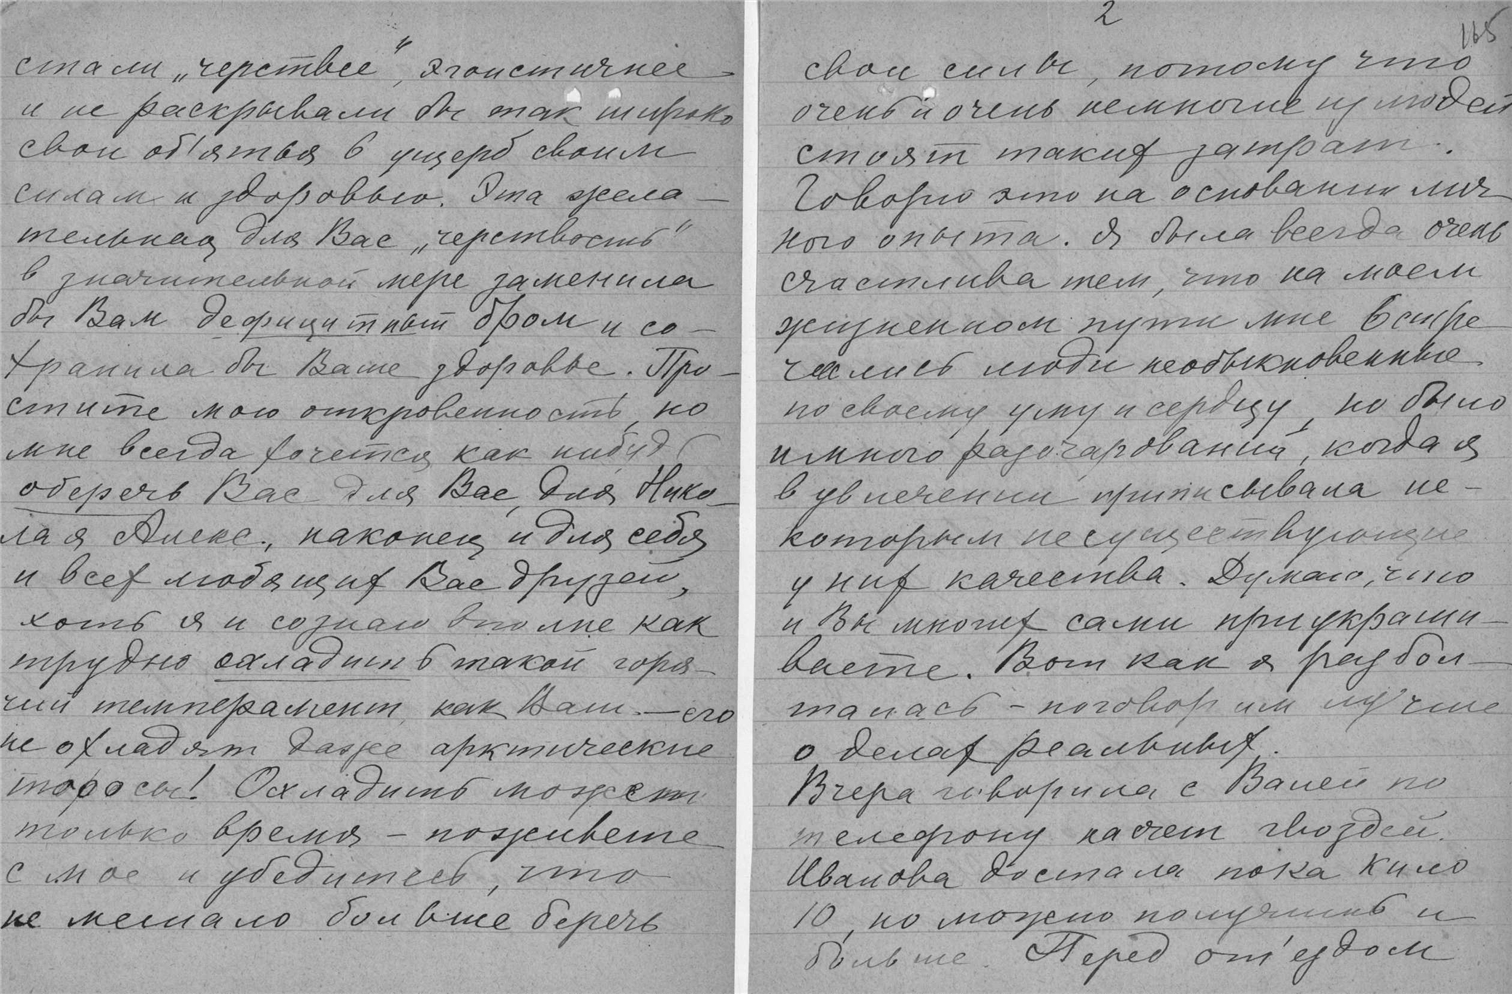 стали „черствее", эгоистичнее
и не раскрывали бы так широко
свои об'ятья в ущерб своим
силам и здоровью. Эта жела-
тельная для Вас „черствость"
в значительной мере заменила
бы Вам дефицитный бром и со-
хранила бы Ваше здоровье. Про-
стите мою откровенность, но
мне всегда хочется как нибудь
оберечь Вас для Вас, для Нико-
лая Алекс., наконец и для себя
и всех любящих Вас друзей,
хоть я и сознаю вполне как
трудно охладить такой горя-
чий темперамент, как Ваш. — его
не охладят даже арктические
торосы! Охладить может
только время – поживете
с мое и убедитесь, что
не мешало больше беречь
2
165
свои силы, потому что
очень и очень немногие из людей
стоят таких затрат.
Говорю это на основании лич-
ного опыта. Я была всегда очень
счастлива тем, что на моем
жизненном пути мне встре-
чались люди необыкновенные
по своему уму и сердцу, но было
и много разочарований, когда я
в увлечении приписывала не-
которым несуществующие
у них качества. Думаю, что
и Вы многих сами приукраши-
ваете. Вот как я разбол-
талась – поговорим лучше
о делах реальных.
Вчера говорила с Валей по
телефону насчет гвоздей.
Иванова достала пока кило
10, но можно получить и
больше. Перед от'ездом